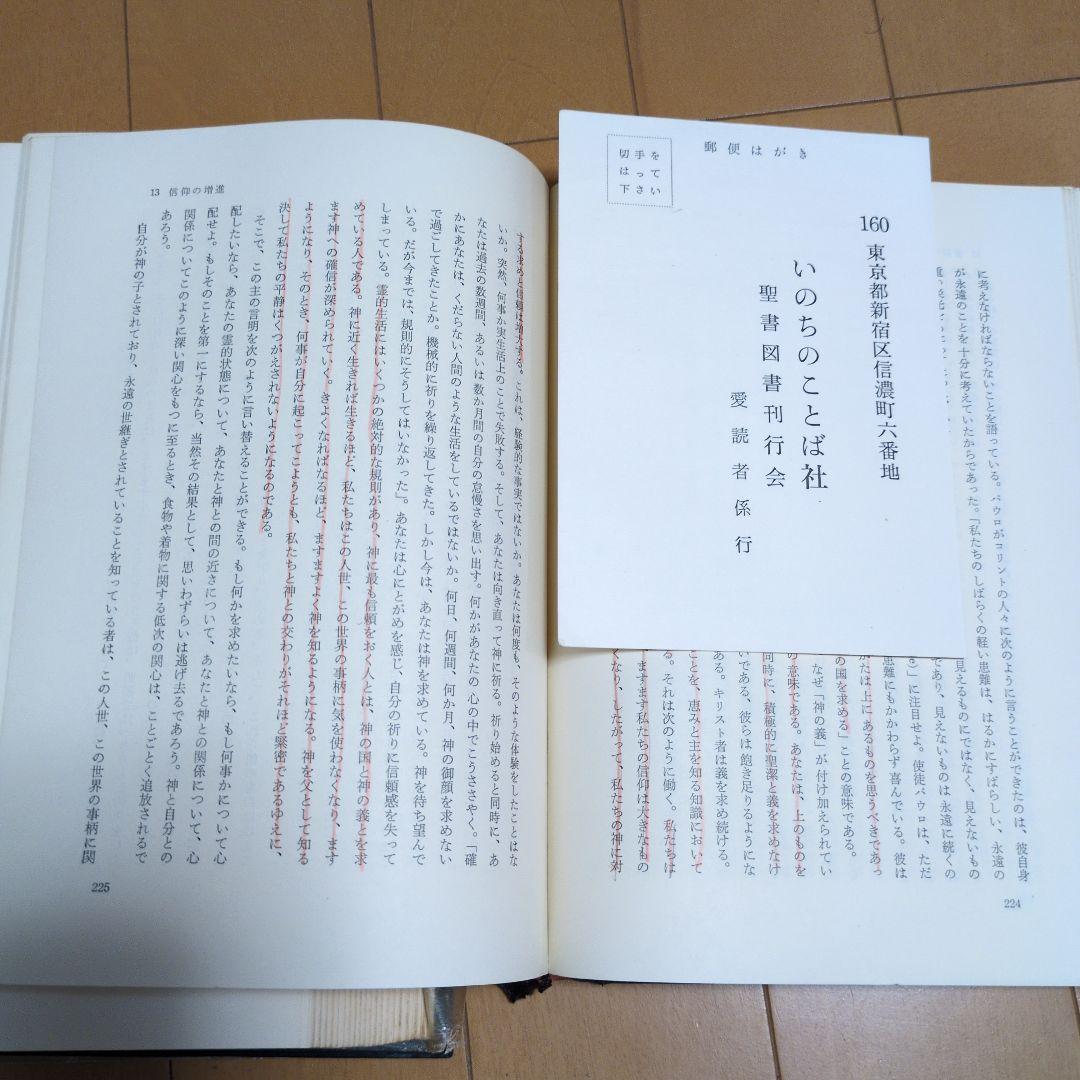 郵便はがき
切手を
はって
下さい
160
東京都新宿区信濃町六番地
いのちのことば社
聖書図書刊行会
愛読者係行
に考えなければならないことを語っている。パウロがコリントの人々に次のように言うことができたのは、彼自身
が永遠のことを十分に考えていたからであった。「私たちの しばらくの軽い患難は、はるかにすばらしい、永遠の
見えるものにではなく、見えないもの
であり、見えないものは 永遠に続くの
に注目せよ。使徒パウロは、ただ
患難にもかかわらず喜んでいる。彼は
たは上に あるものを思うべきであっ
の国を求める」ことの意味である。
なぜ「神の義」が付け加えられてい
の意味である。あなたは、上のものを
同時に、積極的に聖潔と義を求めなけ
いである、彼らは飽き足りるようにな
る。キリスト者は義を求め続ける。
ことを、恵みと主を知る知識において
る。それは次のように働く。私たちは
ますます私たちの信仰は大きなもの
くなり、したがって、私たちの神に対
224
13 信仰の増進
する求めと信頼は増大する。これは、経験的な事実ではないか。あなたは何度も、そのような体験をしたことはな
いか。突然、何事か実生活上のことで失敗する。そして、あなたは向き直って神に祈る。祈り始めると同時に、あ
なたは過去の数週間、あるいは数か月間の自分の怠慢さを思い出す。何かがあなたの心の中でこうささやく。「確
かにあなたは、くだらない人間のような生活をしているではないか。何日、何週間、何か月、神の御顔を求めない
で過ごしてきたことか。機械的に祈りを繰り返してきた。しかし今は、あなたは神を求めている。神を待ち望んで
いる。だが今までは、規則的にそうしてはいなかった」。あなたは心にとがめを感じ、自分の祈りに信頼感を失って
しまっている。霊的生活にはいくつかの絶対的な規則があり、神に最も信頼をおく人とは、神の国と神の義とを求
めている人である。神に近く生きれば生きるほど、私たちはこの人世、この世界の事柄に気を使わなくなり、ます
ます神への確信が深められていく。きよくなればなるほど、ますますよく神を知るようになる。神を父として知る
ようになり、そのとき、何事が自分に起こってこようとも、私たちと神との交わりがそれほど緊密であるゆえに、
決して私たちの平静はくつがえされないようになるのである。
そこで、この主の言明を次のように言い替えることができる。もし何かを求めたいなら、もし何事かについて心
配したいなら、あなたの霊的状態について、あなたと神との間の近さについて、あなたと神との関係について、心
配せよ。もしそのことを第一にするなら、当然その結果として、思いわずらいは逃げ去るであろう。神と自分との
関係についてこのように深い関心をもつに至るとき、食物や着物に関する低次の関心は、ことごとく追放されるで
あろう。
自分が神の子とされており、永遠の世継ぎとされていることを知っている者は、この人世、この世界の事柄に関
225